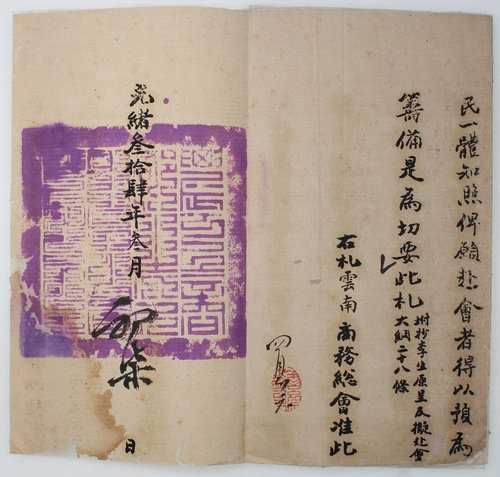 民一體知照俾願赴會者得以預為
籌備是為切要此札
附抄李生原呈及擬赴會
大綱二十八條
右札雲南商務總會准此
四月
光緒叁拾肆年叁月
日